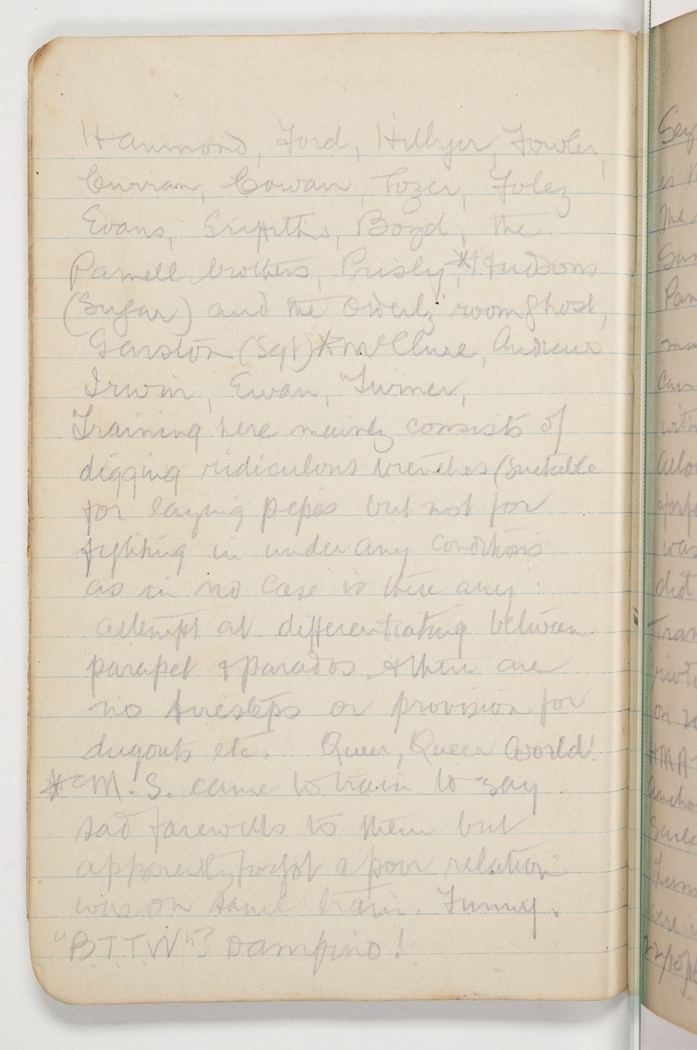 Hammond, Ford, Hillyer, Fowler,
Curran, Cowan, Tozer, Foley
Evans, Griffiths, Boyd, the
Parnell brothers, Prisly, * Hudsons
(Sugar) and the Orderly room ghost,
Garston (Sgt) * McClure, Andrews
Irwin, Ewan, Turner,
Training here mainly consists of
digging ridiculous trenches (suitable
for laying pipes but not for
fighting in under any conditions
as in no case is there any
attempt at differentiating between
parapet & parados, & there are
no firesteps or provision for
dugouts etc. Queer, Queer World!
* M.S. came to train to say
sad farewells to them but
apparently forgot a poor relation
was on same train. Funny.
"BTTW"?